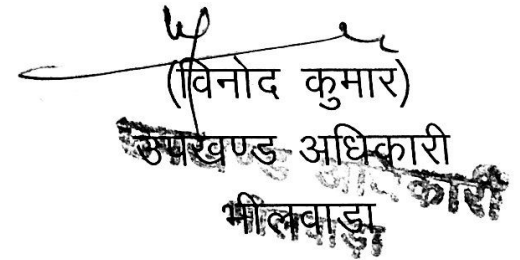 (विनोद कुमार)
उपखण्ड अधिकारी
भीलवाड़ा